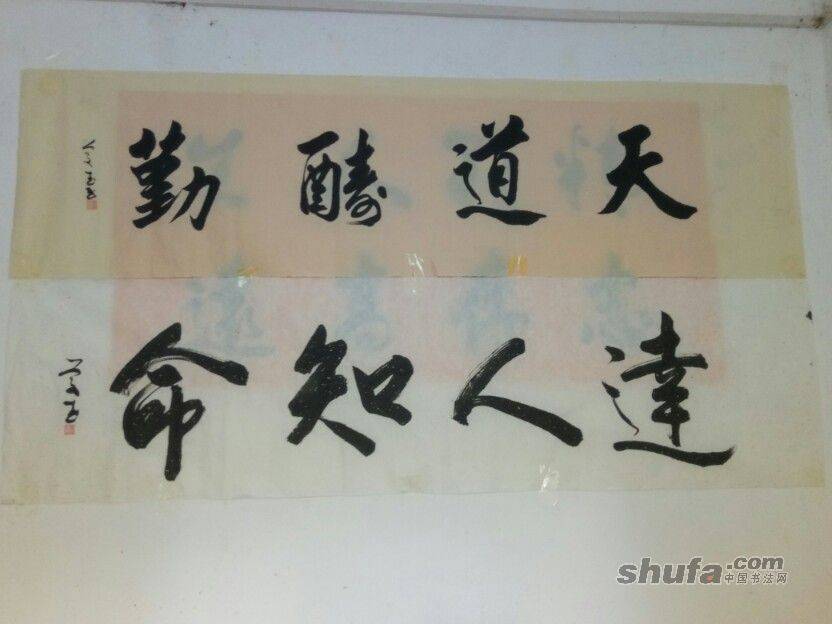 天道酬勤
達人知命
shufa.com
中国书法网